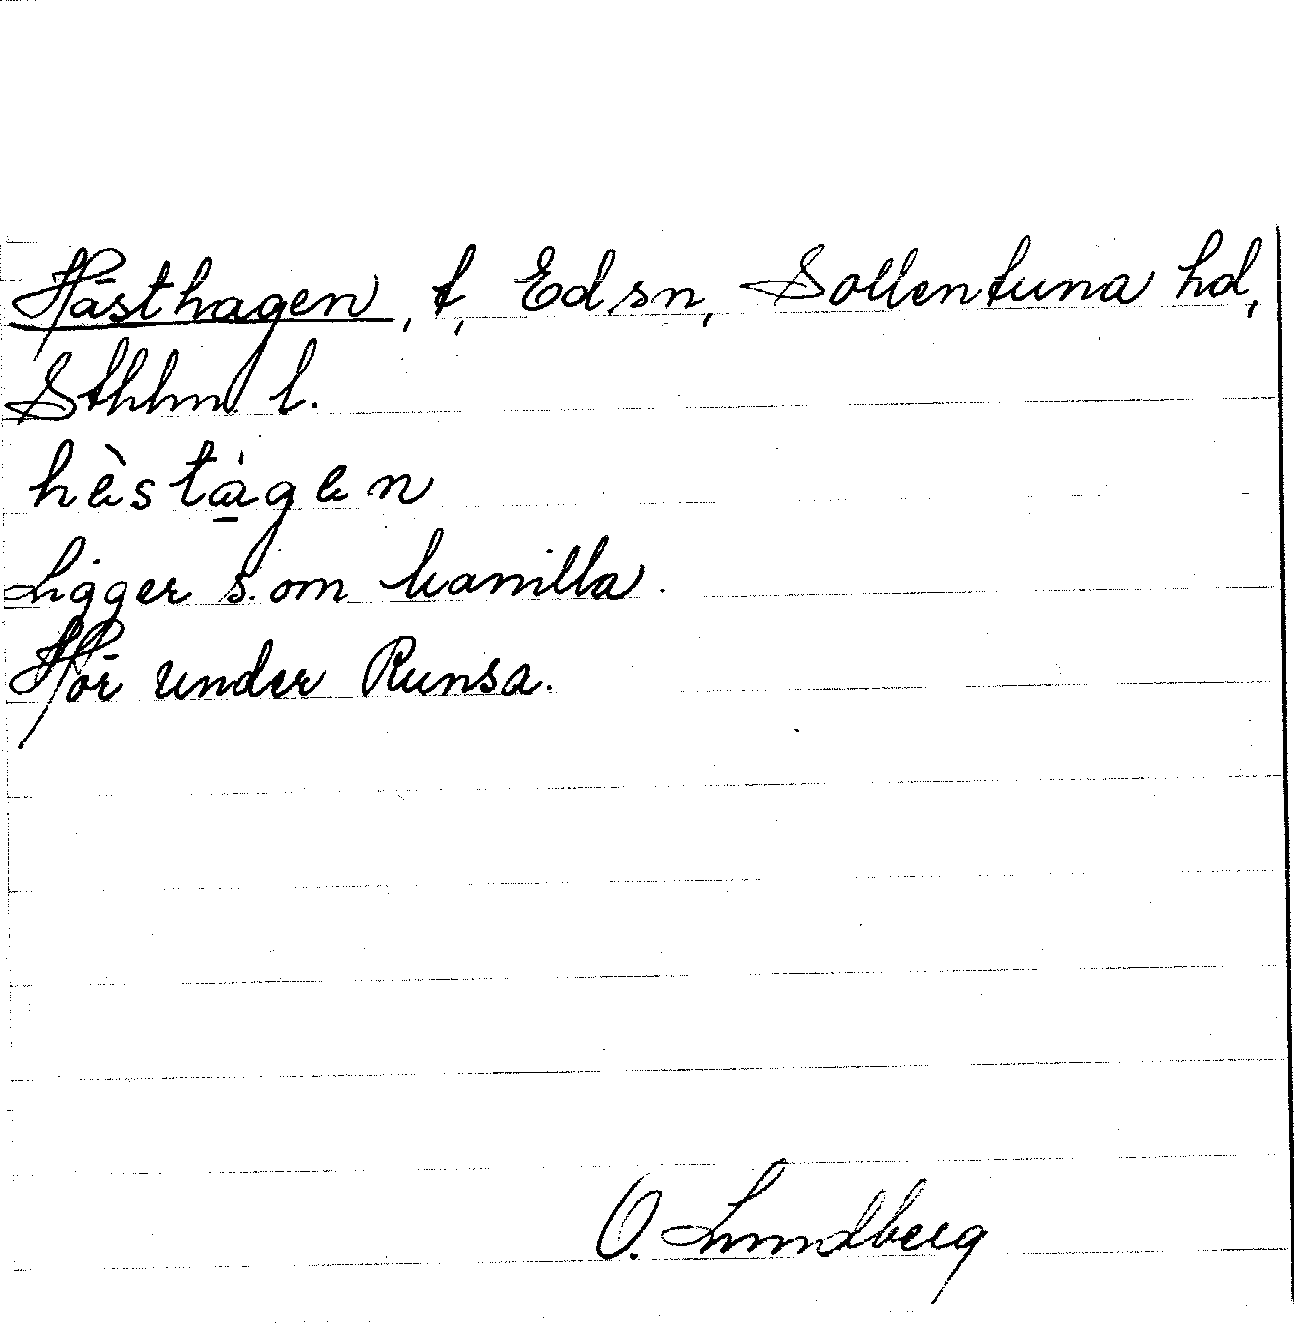 Hästhagen, t, Ed sn, Sollentuna hd,
Sthlm l.
hèstàgen
Ligger s. om kamilla.
Hör under Runsa.
O. Lundberg